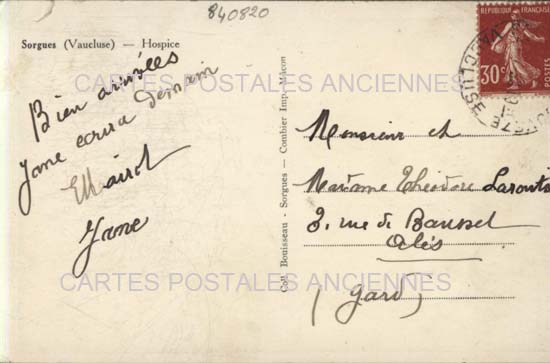 840820
Sorgues (Vaucluse) — Hospice
Bien arrivées
Jane ecrira demain
Jane
Coll. Bouisseau - Sorgues — Combier Imp. Mâcon
REPUBLIQUE FRANÇAISE
30c
POSTES
VAUCLUSE
Monsieur et
Madame Théodore
3, rue de
Alés
(Gard)
CARTES POSTALES ANCIENNES
CARTES POSTALES ANCIENNES